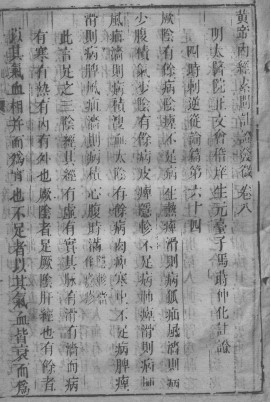 黃帝內經素問註證發微卷八
明太醫院正文會稽庠生元臺子馬蒔仲化註證
四時刺逆從論篇第六十四
厥陰有餘病陰痺不足病生熱痺滑則病狐疝風濇則病
少腹積氣少陰有餘病皮痺隱軫不足病肺痺滑則病肺
風疝濇則病積溲血太陰有餘病肉痺寒中不足病脾痺
滑則病脾風疝濇則病積心腹時滿
此言足之三陰經其經有虛有實其脉有滑有濇而病
有寒有熱有內有外也厥陰者足厥陰肝經也有餘者
以其氣血相并而爲實也不足者以其氣血皆衰而爲